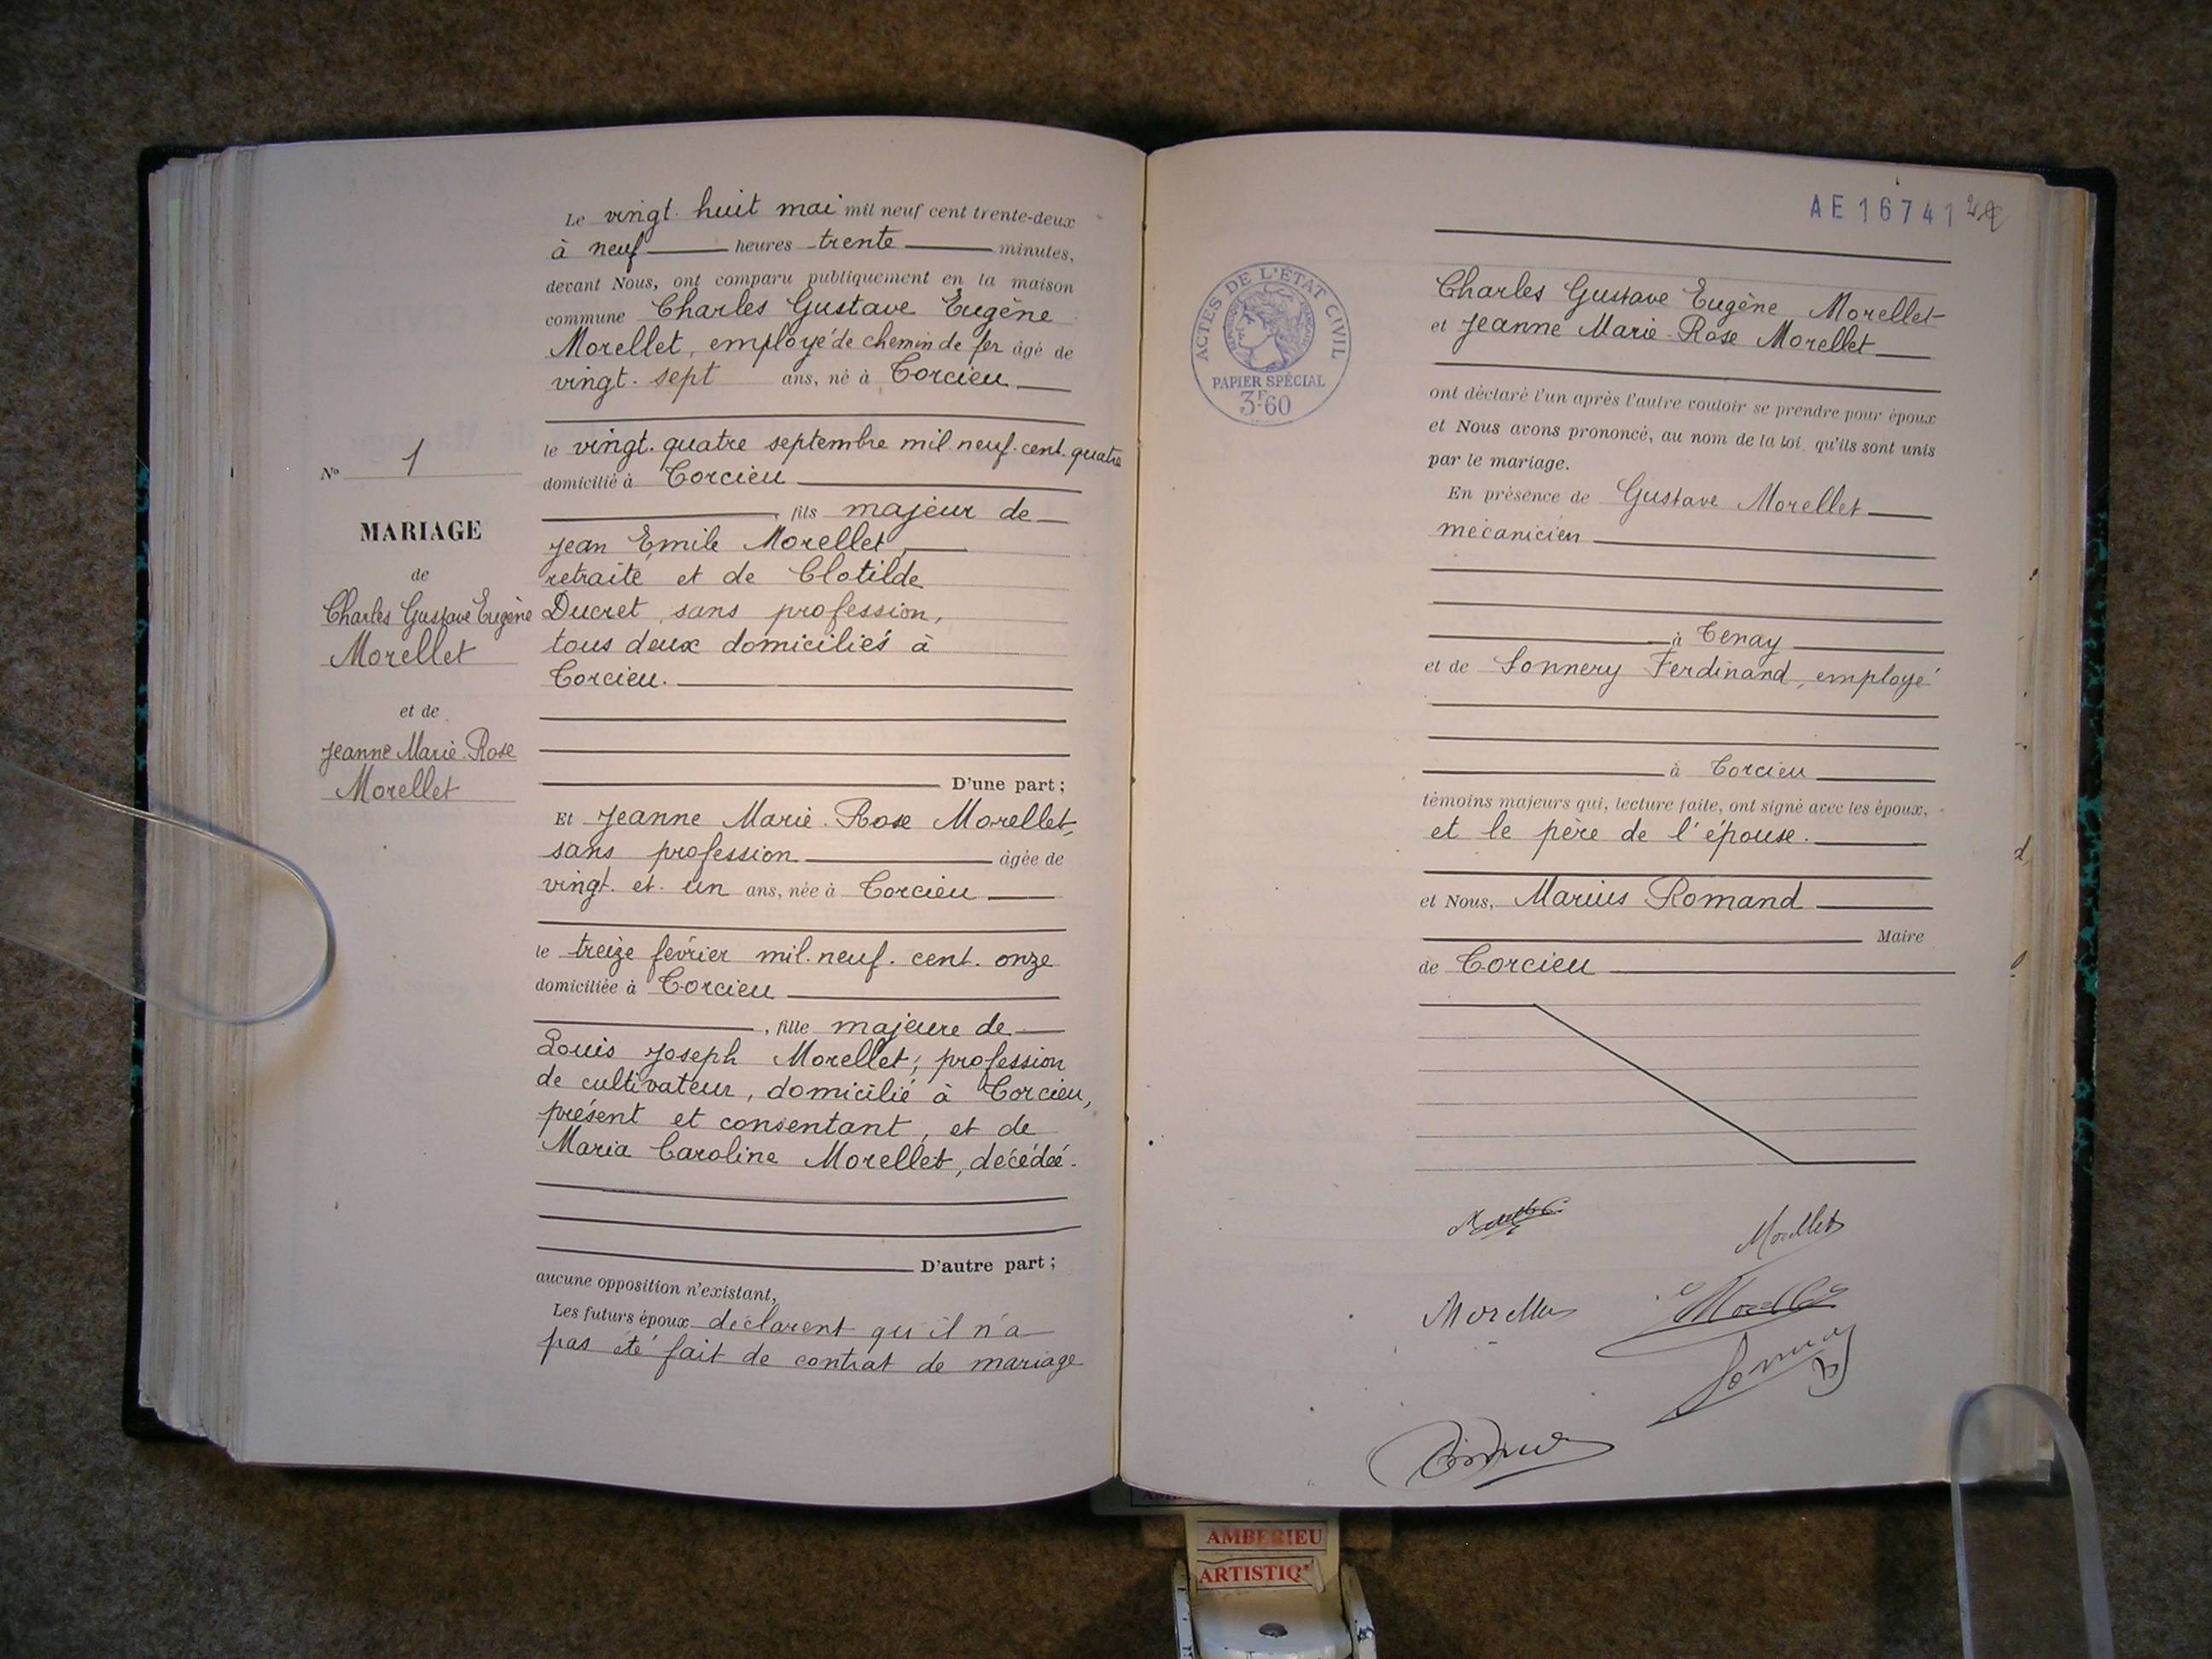 Le vingt. huit mai mil neuf cent trente-deux
à neuf heures trente minutes,
devant Nous, ont comparu publiquement en la maison
commune Charles Gustave Eugène
Morellet, employé de chemin de fer âgé de
vingt. sept ans, né à Torcieu
le vingt. quatre septembre mil. neuf. cent. quatre
domicilié à Torcieu
, fils majeur de
Jean Emile Morellet,
retraité et de Clotilde
Ducret, sans profession,
tous deux domiciliés à
Torcieu.
D'une part ;
Et Jeanne Marie-Rose Morellet,
sans profession âgée de
vingt. et. un ans, née à Torcieu
le treize février mil. neuf. cent. onze
domiciliée à Torcieu
, fille majeure de
Louis Joseph Morellet, profession
de cultivateur, domicilié à Torcieu,
présent et consentant, et de
Maria Caroline Morellet, décédée.
D'autre part ;
aucune opposition n'existant,
Les futurs époux déclarent qu'il n'a
pas été fait de contrat de mariage
N° 1
MARIAGE
de
Charles Gustave Eugène
Morellet
et de
Jeanne Marie-Rose
Morellet
AE 16741
ACTES DE L'ÉTAT CIVIL
PAPIER SPÉCIAL
3F60
Charles Gustave Eugène Morellet
et Jeanne Marie-Rose Morellet
ont déclaré l'un après l'autre vouloir se prendre pour époux
et Nous avons prononcé, au nom de la loi, qu'ils sont unis
par le mariage.
En présence de Gustave Morellet
mécanicien
à Tenay
et de Sonnery Ferdinand, employé
à Torcieu
témoins majeurs qui, lecture faite, ont signé avec les époux,
et le père de l'épouse.
et Nous, Marius Romand
Maire
de Torcieu
Morellet
Morellet
Morellet
AMBERIEU
ARTISTIQ